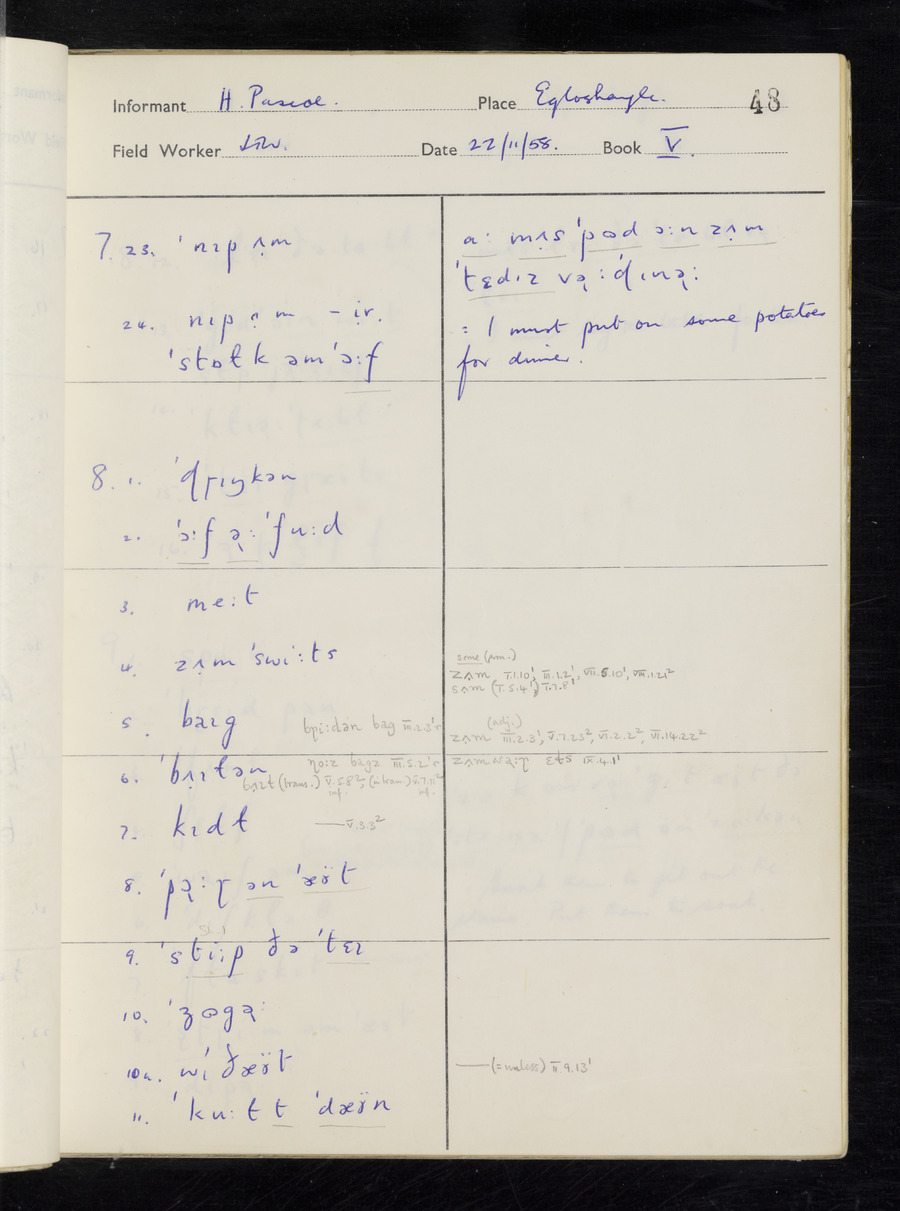 Informant H. Pascoe. Place Egloshayle. 48
Field Worker Date 22/11/58. Book V.
7. 23. 'nɪp ʌ̣m
24. nɪp ə̣ m - ir.
'stɒtk əm'ɔ:f
a: mʌ̣s 'pɵd ɔ:n zʌ̣m
'tɛdɪz və̢:'dɪnə̢:
= I must put on some potatoes
for dinner.
8. 1. 'dɽɪŋkən
2. 'ɔ:f ə̢: 'fu:d
3. me:t
4. zʌm 'swi:ts
some (pron.)
zʌm V.1.10', III.1.2', VII.5.10', VIII.1.21²
sʌm (V.5.4') V.7.8'
5. baɪg
bɽi:dən bag III.2.3'
(adj.)
zʌm III.2.3', V.7.23², VI.2.2², VI.14.22²
6. 'bɪ̣tən
III.5.2'
(trans.) V.5.8²; (intran.) V.7.11²
inf. inf.
ɛts IX.4.1'
7. kɪdt
— V.3.3²
8. 'pə̢:ɽ ən 'æɤ̈t
9. 'sti:p ðə 'tɛɪ
10. 'ʒɵgə̢:
10a. wi'ðæɤ̈t
— (= unless) II.9.13'
11. 'ku:t t 'dæɤ̈n